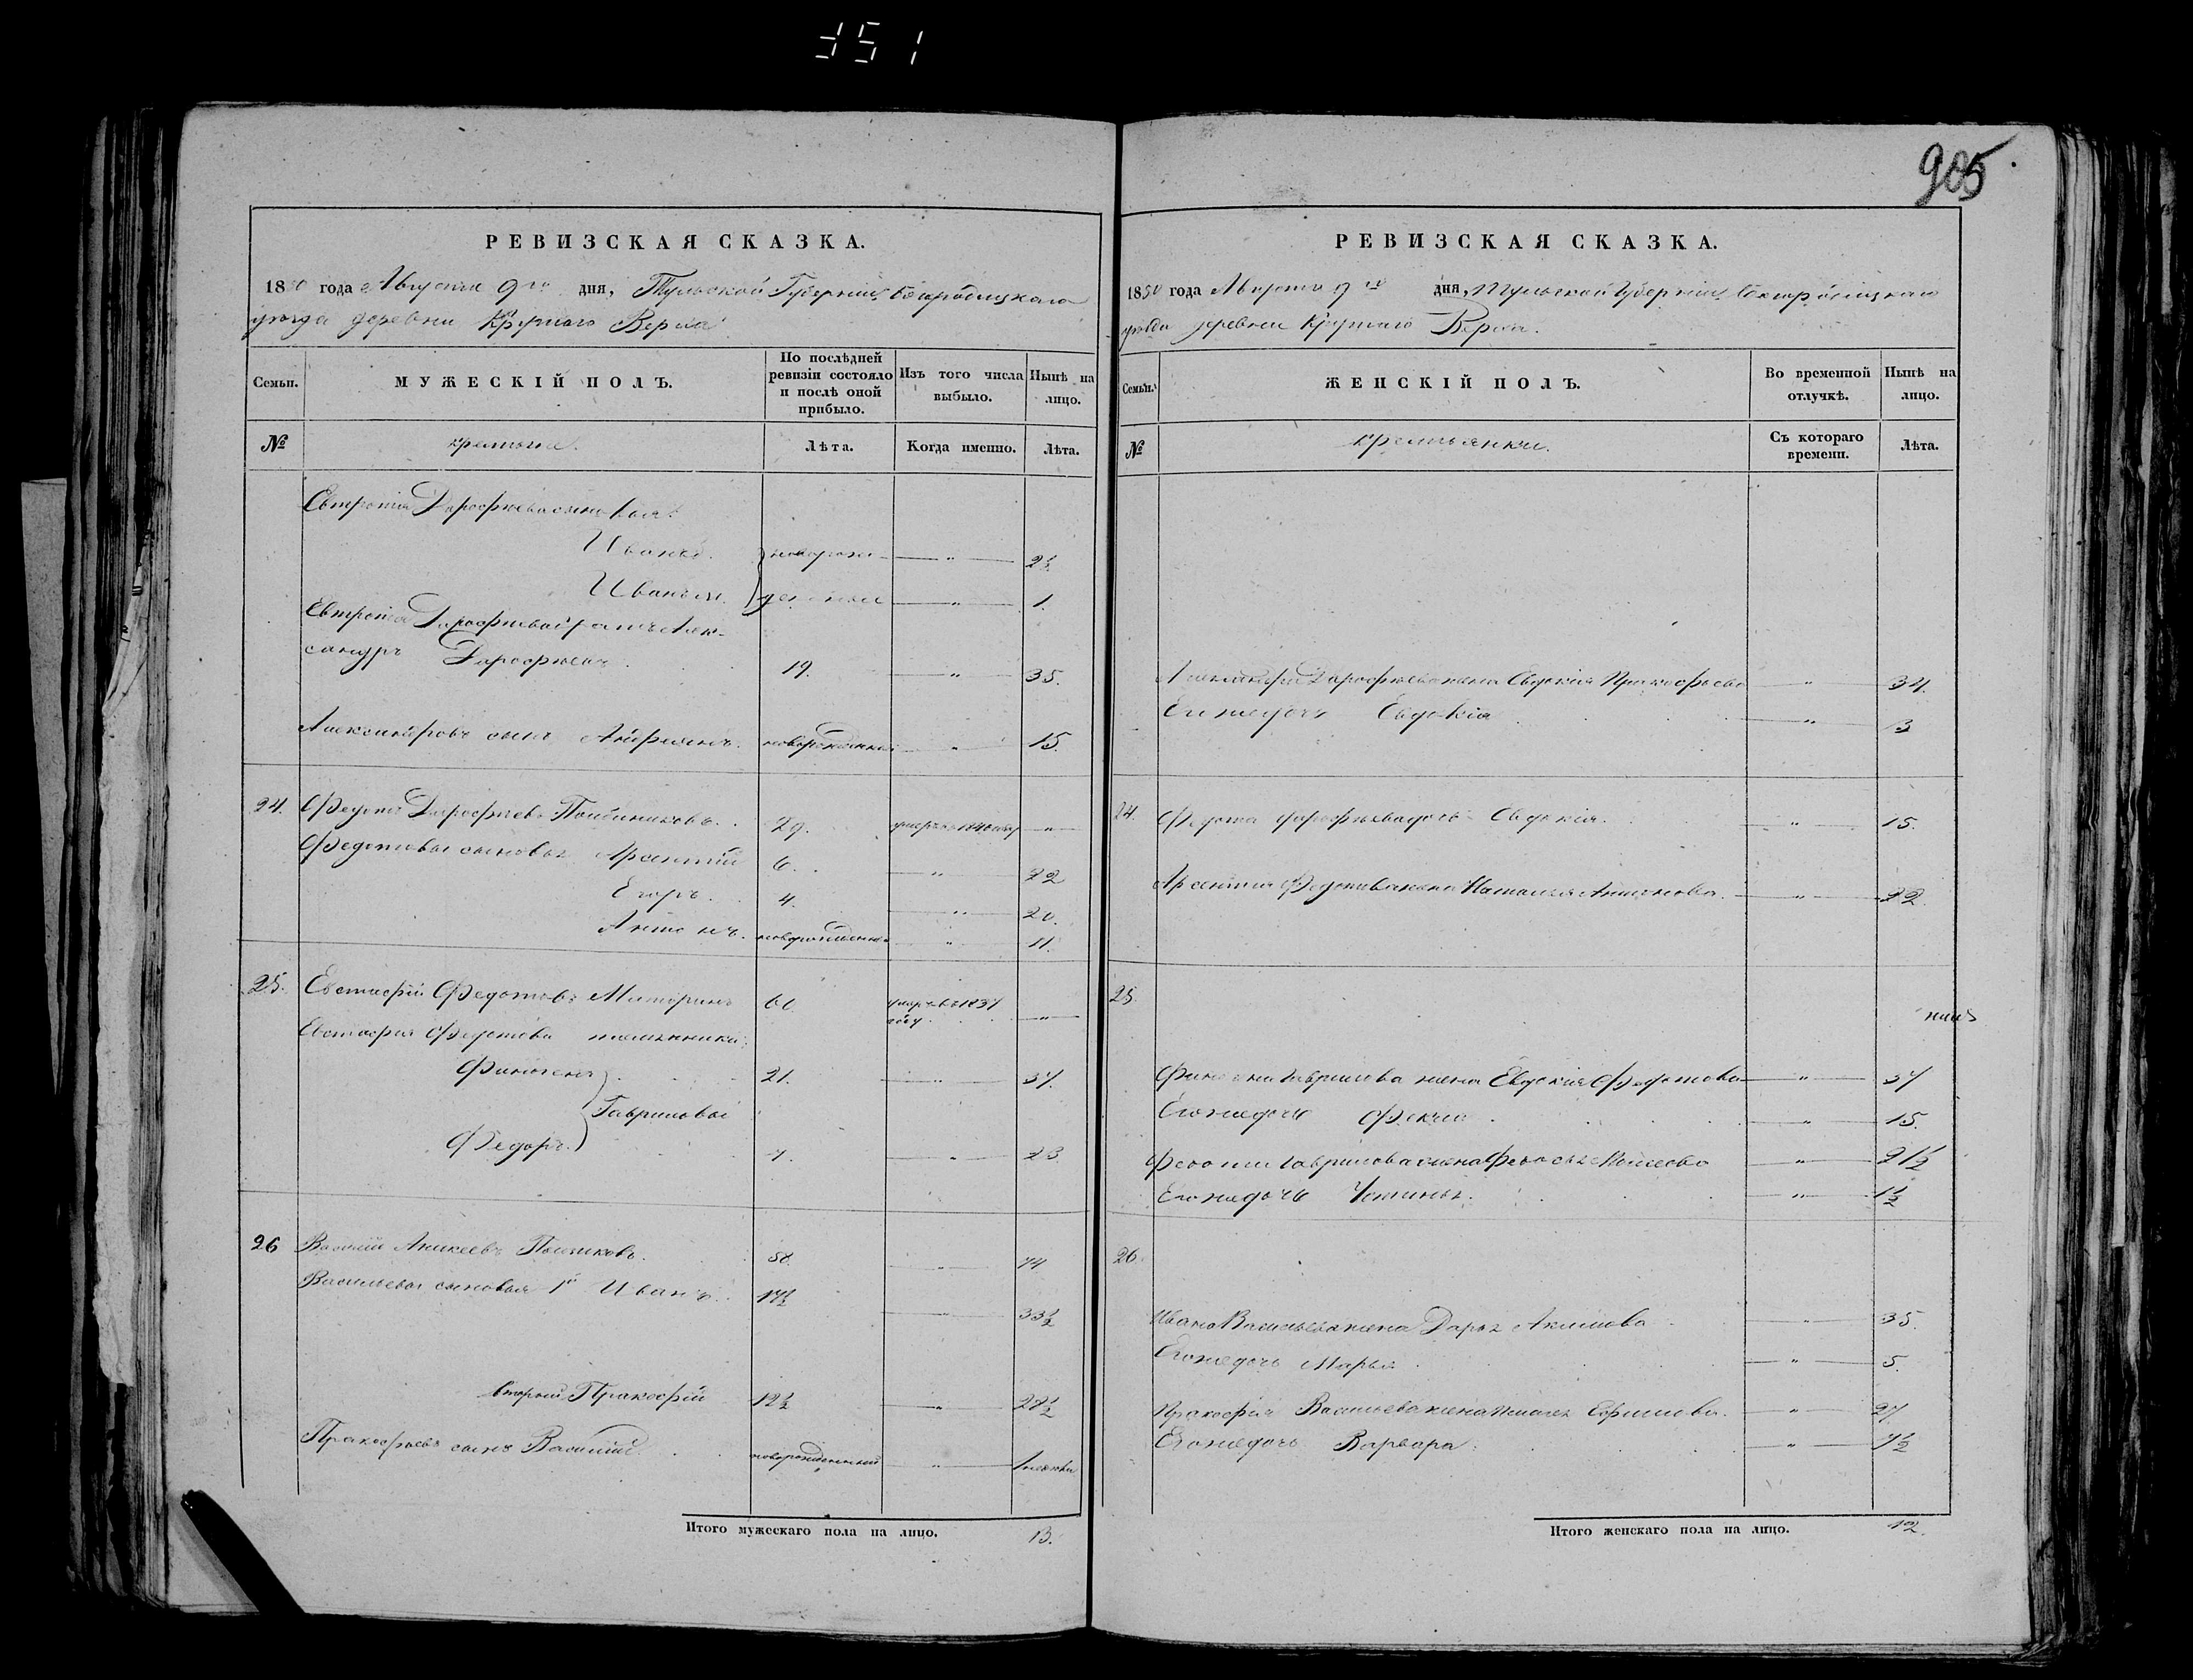 351
905
РЕВИЗСКАЯ СКАЗКА.
1850 года Августа 9го дня, Тульской Губерніи Богородицкаго
уѣзда деревни Круглаго Верха
Семьи. МУЖЕСКІЙ ПОЛЪ. По послѣдней ревизіи состояло и послѣ оной прибыло. Изъ того числа выбыло. Нынѣ на лицо.
№ крестьяне. Лѣта. Когда именно. Лѣта.
Евтропія Дарофѣева сыновья:
Иванъ. новорож- " 2½
Иванъ. денные " 1.
Евтропія Дарофѣева братъ Алек-
сандръ Дарофѣевъ 19. " 35.
Александровъ сынъ новорожденный " 15.
24. Федотъ Дарофѣевъ 29. умеръ в 1840 году "
Федотовы сыновья Арсентій 6. " 22
Егоръ. 4. " 20.
Антонъ. новорожденный " 11.
25. Евстафій Федотовъ 60 умеръ въ 1837 году "
Евстафія Федотова племянники:
Финогенъ 21. " 37.
Гавриловы
Федоръ. 7. " 23.
26 Василій Аникеевъ 58. " 74
Васильевы сыновья 1й Иванъ. 17½ " 33½
вторый Пракофій 12½ " 28½
Пракофьевъ сынъ Василій новорожденный " 1 недѣли
Итого мужескаго пола на лицо. 13.
РЕВИЗСКАЯ СКАЗКА.
1850 года Августа 9го дня, Тульской Губерніи Богородицкаго
уѣзда деревни Круглаго Верха.
Семьи. ЖЕНСКІЙ ПОЛЪ. Во временной отлучкѣ. Нынѣ на лицо.
№ крестьянки. Съ котораго времени. Лѣта.
Александра Дарофѣева жена Евдокія Пракофьева " 34.
Его же дочь Евдокія " 3
24. Федота Дарофѣева дочь Евдокія. " 15.
Арсентія Федотова жена Наталья Антонова. " 22.
25.
Финогена Гаврилова жена Евдокія Федотова " 37
Его же дочь Фекла " 15.
Гаврилова жена Федосья " 21½
Его же дочь Устинья. " 1½
26.
Ивана Васильева жена Дарья Акимова " 35.
Его же дочь Марья " 5.
Пракофія Васильева жена Ефимова. " 27.
Его же дочь Варвара. " 7½
Итого женскаго пола на лицо. 12.